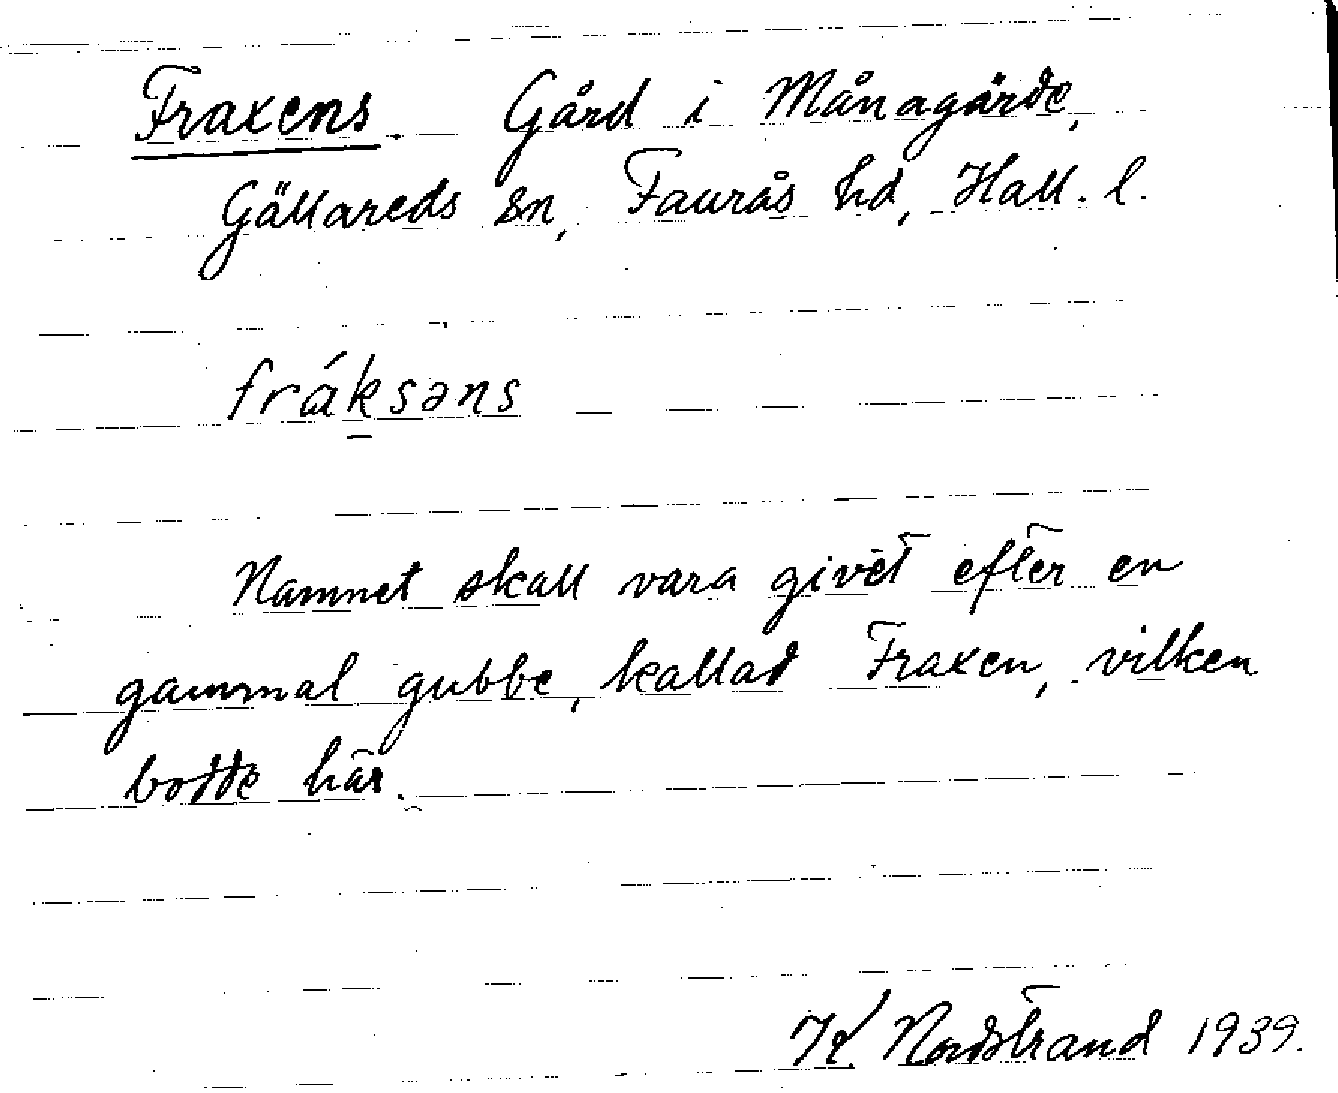 Fraxens. Gård i Månagärde,
Gällareds sn, Faurås hd, Hall. l.
fráksəns
Namnet skall vara givet efter en
gammal gubbe, kallad Fraxen, vilken
bodde här.
Nordstrand 1939.